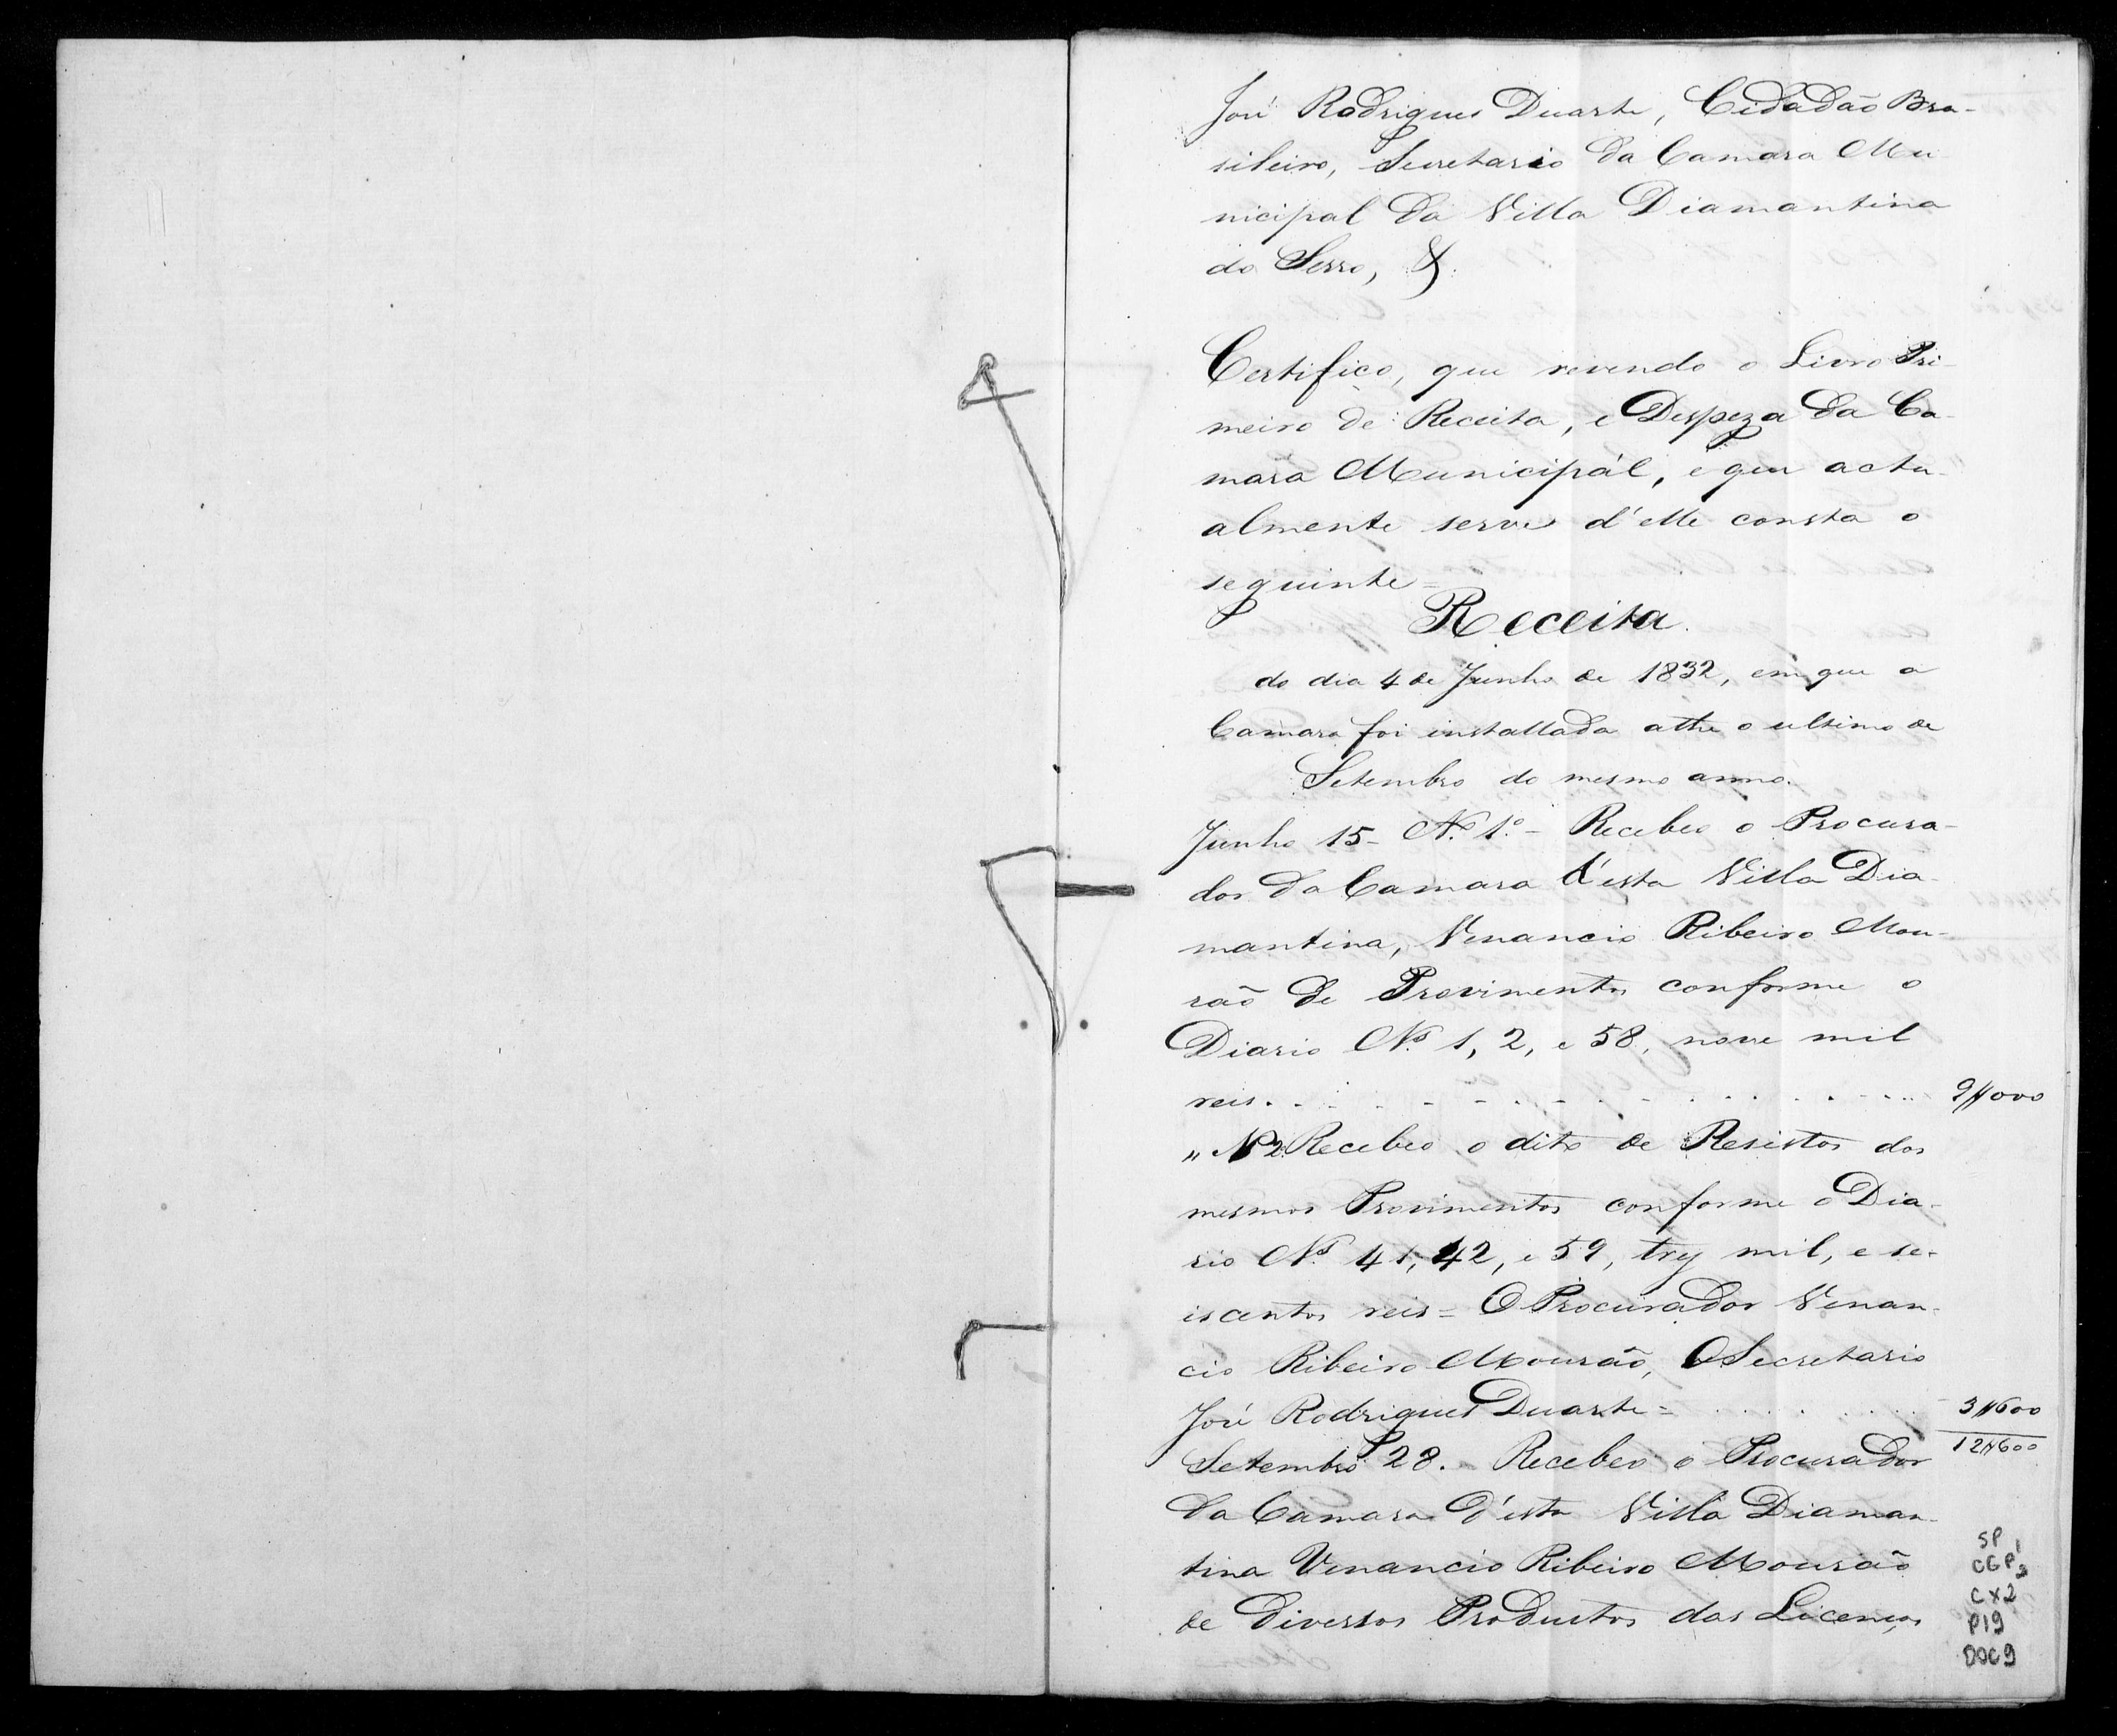 José Rodrigues Duarte, Cidadão Bra-
sileiro, Secretario da Camara Mu
nicipal da Villa Diamantina
do Serro, &.
Certifico, que revendo o Livro Pri-
meiro de Receita, e Despeza da Ca-
mara Municipál, e que actu-
almente serve d'elle consta o
seguinte =
Receita.
do dia 4 de Junho de 1832, em que a
Camara foi installada athe o ultimo de
Setembro do mesmo anno.
Junho 15 - Nº 1º - Recebeo o Procura-
dor da Camara d'esta Villa Dia-
mantina, Venancio Ribeiro Mou-
rão de Provimentos conforme o
Diario Nº 1, 2, e 58, nove mil
reis. 9//000
" Nº 2 Recebeo o dito de Resistos dos
mesmos Provimentos conforme o Dia-
rio Nº 41, 42, e 59, trez mil, e se-
iscentos reis = O Procurador Venan-
cio Ribeiro Mourão, O Secretario
José Rodrigues Duarte = 3//600
12//600
Setembro 28. - Recebeo o Procurador
da Camara d'esta Villa Diaman-
tina Venancio Ribeiro Mourão
de Diversos Productos das Licenças
SP
CGP 1
2
CX2
P19
DOC9